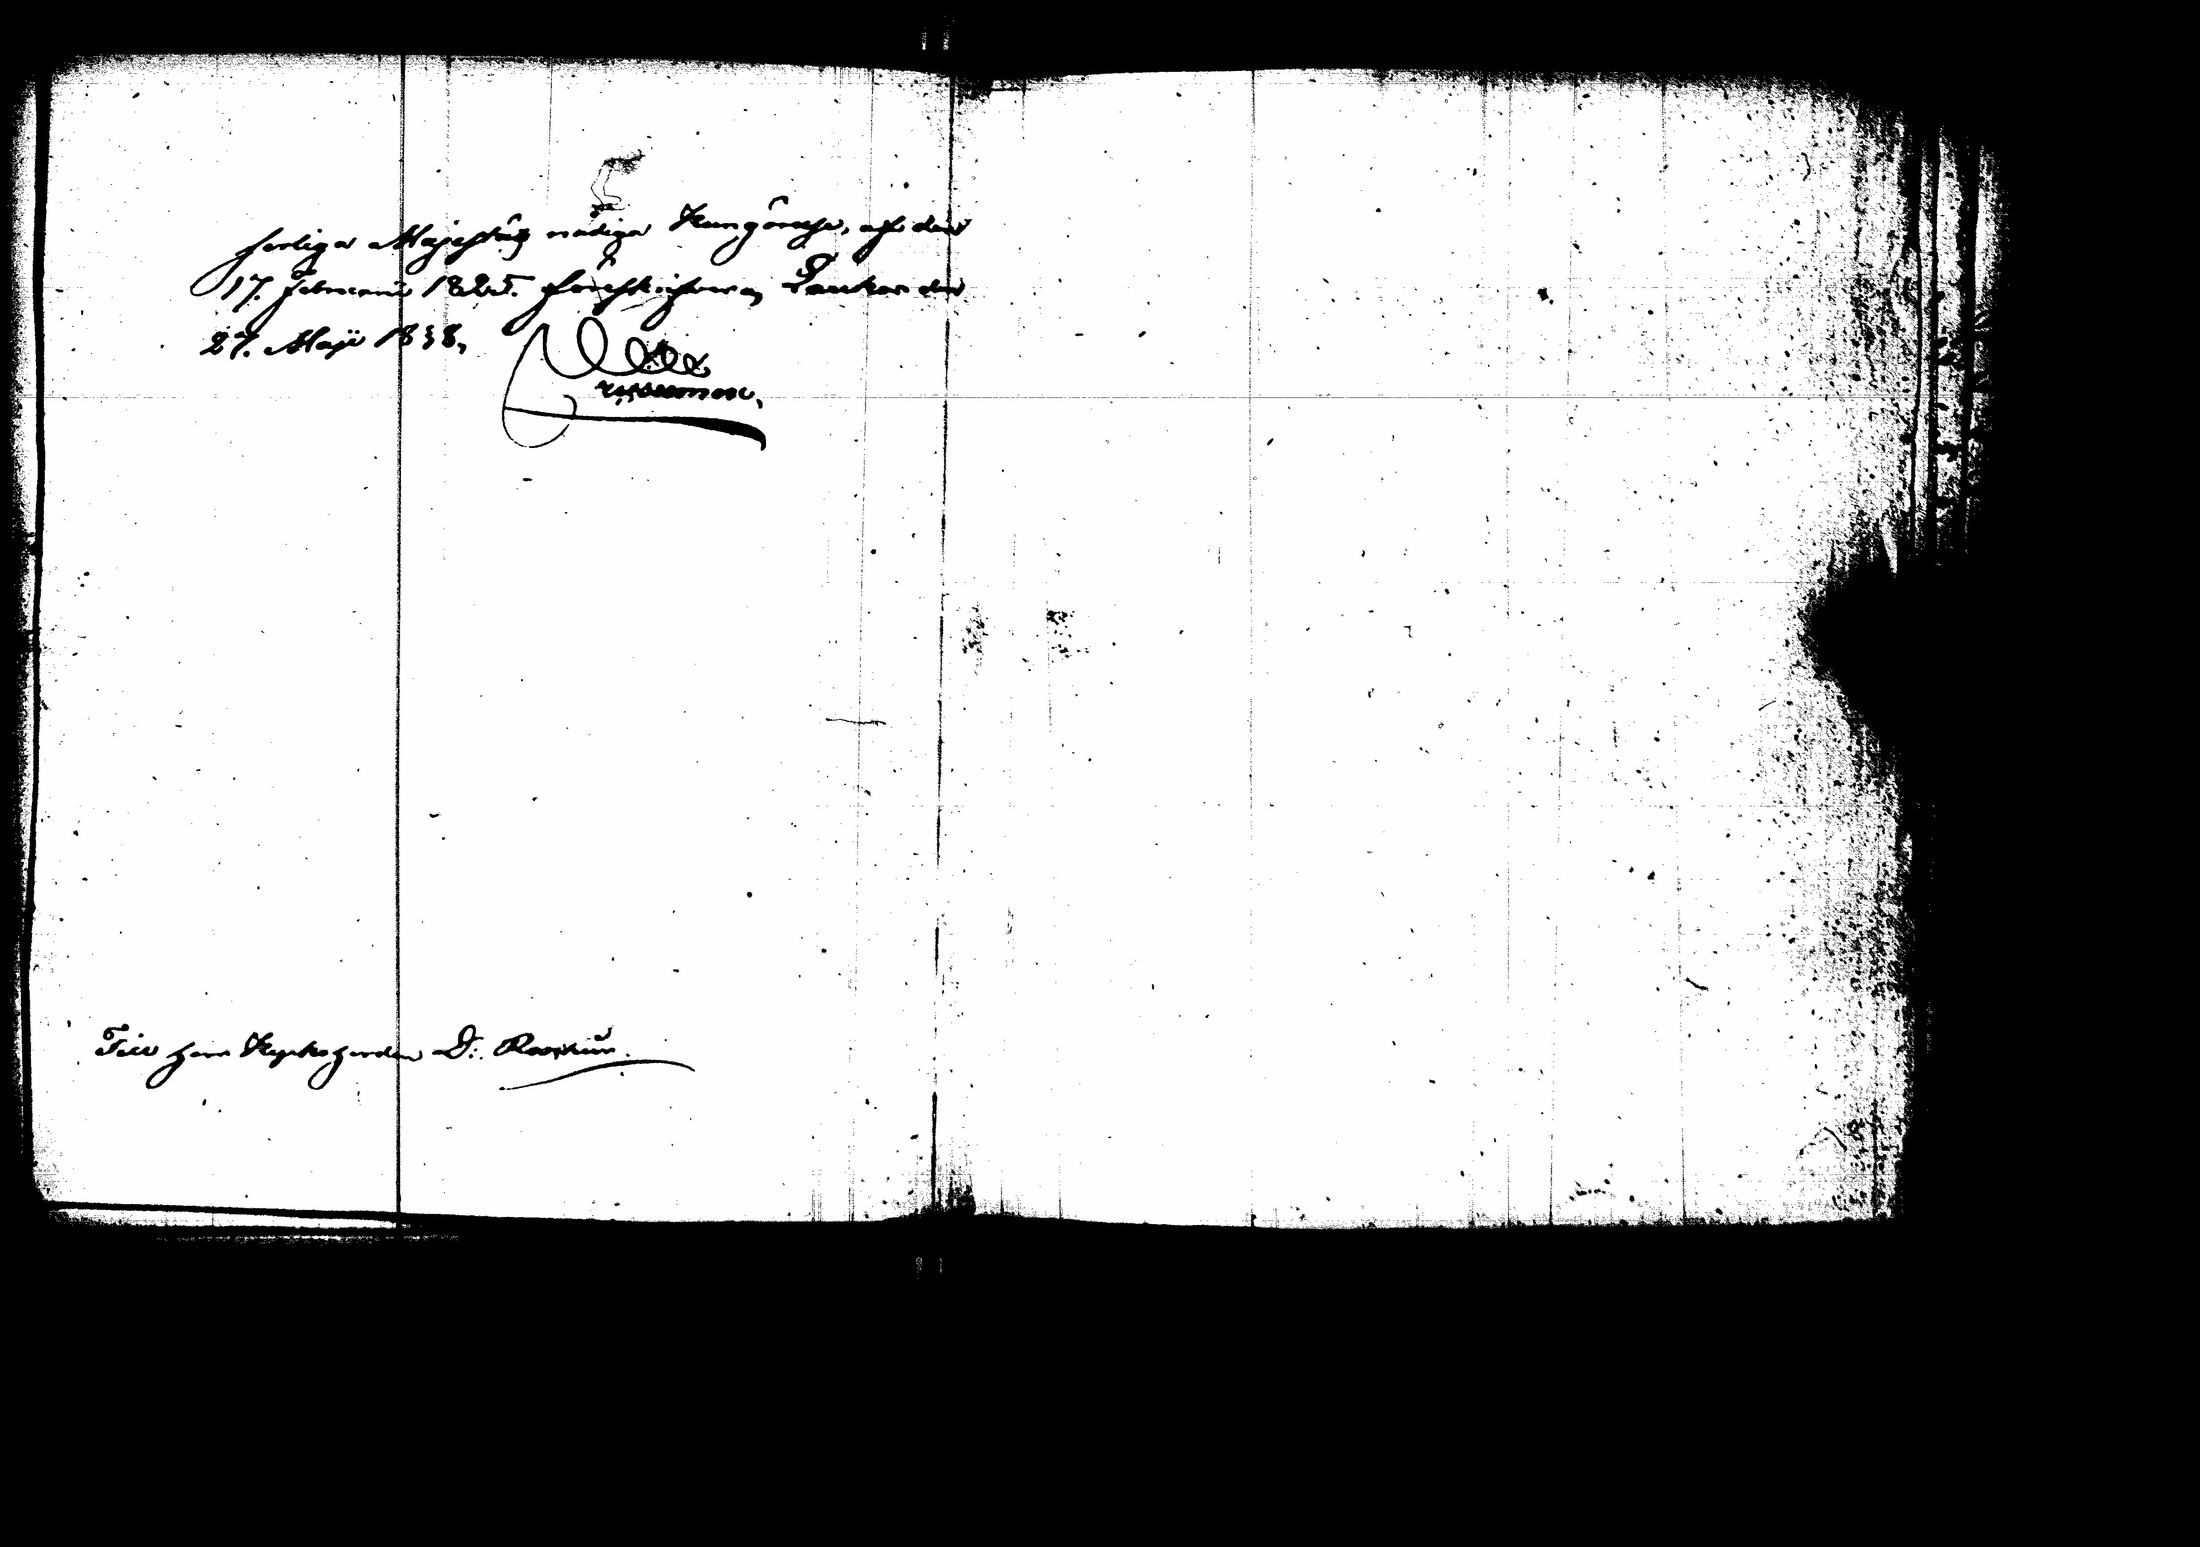 serliga Majestäts nådiga Kungörelse, af den
17. Februarii 1825. föreskrifver; Laukas den
27. Maji 1838,
Till Herr Kyrkoherden D: